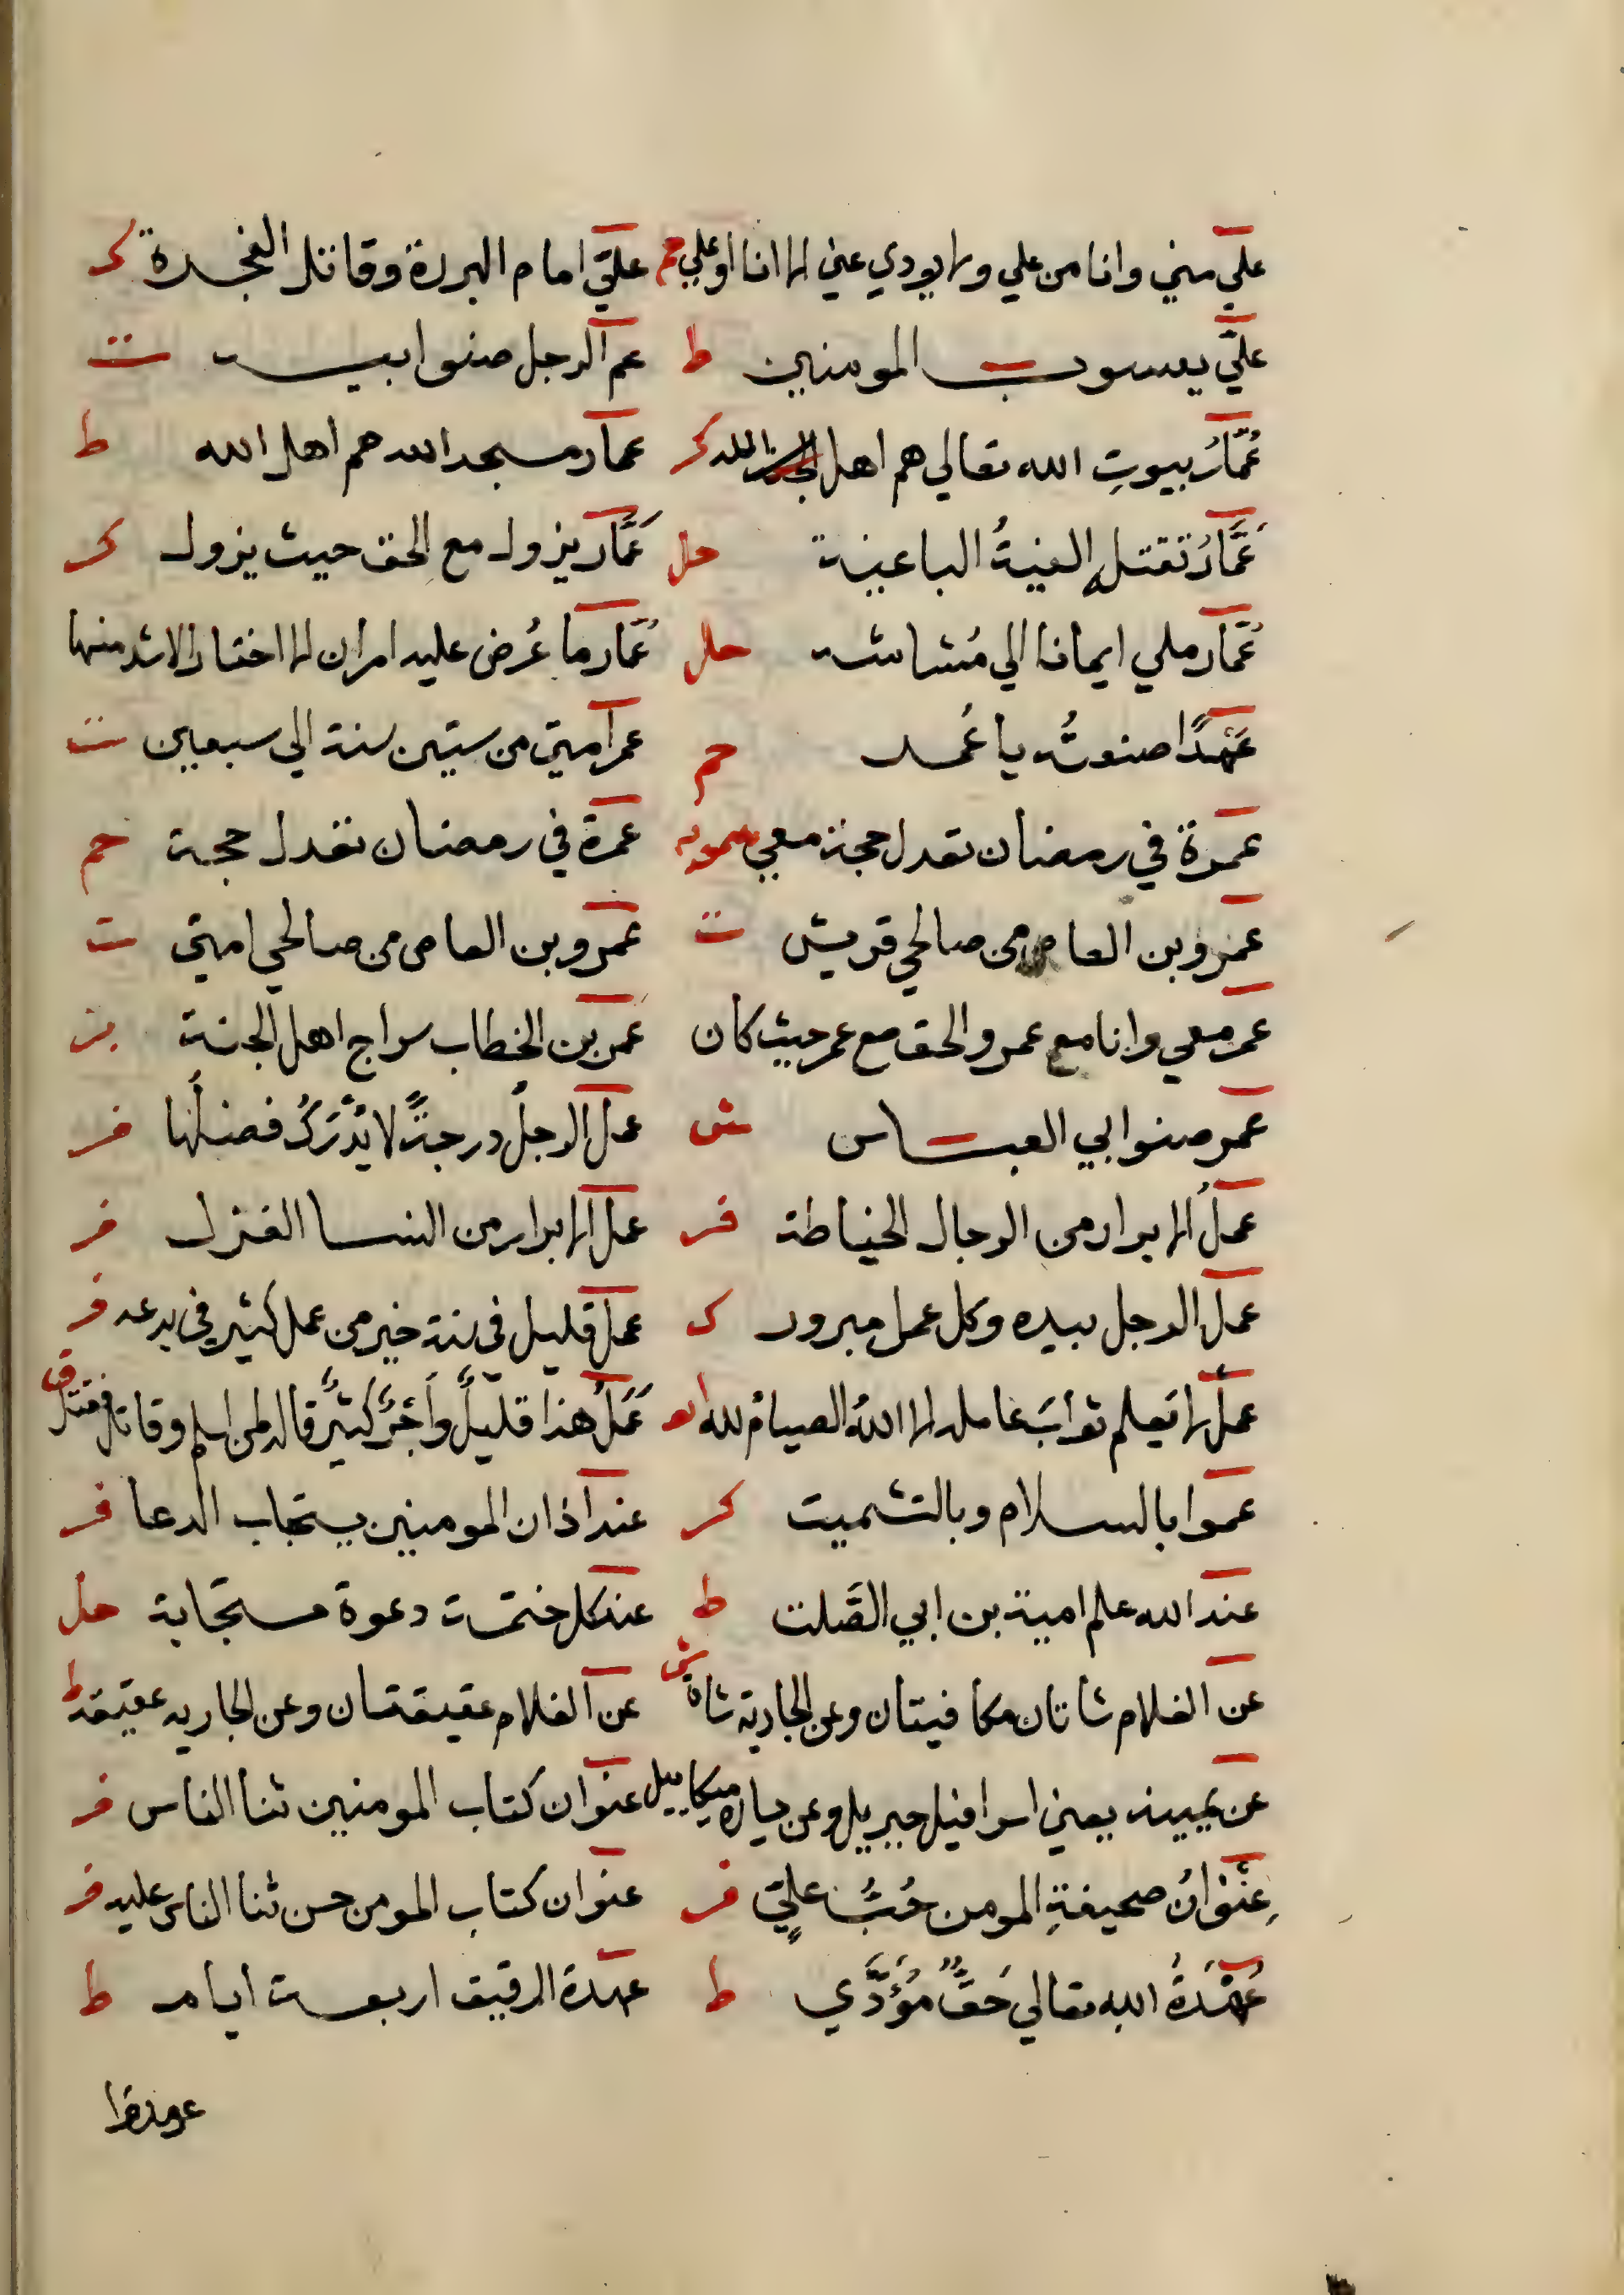 علي مني وانا من علي ولا يودي عني الا انا او علي حم علي امام البررة وقاتل الفجرة كر
علي يعسوب المومنين ط عم الرجل صنو ابيه ت
عُمَّارُ بيوتِ الله تعالي هم اهل الله كر عمار مسجد الله هم اهل الله ط
عَمَّارُ تقتله الفيةُ الباغية حل عَمَّار يزول مع الحق حيث يزول كر
عَمَّار ملي ايمانا الي مُشاشه حل عَمَّار ما عُرض عليه امران الا اختار الاشد منهما
عَمْدًا صنعتُه يا عُمر حم عمر امتي من ستين سنة الي سبعين ت
عمرة في رمضان تعدل حجة معي سمويه عمرة في رمضان تعدل حجة حم
عمرو بن العاص من صالحي قريش ت عمرو بن العاص من صالحي امتي ت
عمر معي وانا مع عمر والحق مع عمر حيث كان عمر بن الخطاب سراج اهل الجنة بز
عمر صنو ابي العباس ش عمل الرجلُ درجةً لا يُدْرَكُ فضلُها فر
عملُ الابرار من الرجال الخياطة فر عمل الابرار من النسا الغزل فر
عمل الرجل بيده وكل عمل مبرور ك عمل قليل في سنة خير من عمل كثير في بدعه فر
عملٌ لا يَعلم ثوابَ عامله الا اللهُ الصيامُ لله ابو عَمَلُ هذا قليلٌ وَاَجْرٌ كثيرٌ قاله لمن اسلم وقاتل فقتل ق
عموا بالسلام وبالتشميت كر عند اذان المومنين يستجاب الدعا فر
عند الله علم امية بن ابي الصَّلت ط عند كل ختمة دعوة مستجابة حل
عن الغلام شاتان مكافيتان وعن الجارية شاة ش عن الغلام عقيقتان وعن الجاريه عقيقة ط
عن يمينه يعني اسرافيل جبريل وعن يساره ميكاييل عنوان كتاب المومنين ثنا الناس فر
عِنْوَانُ صحيفةِ المومن حُبُّ عليٍّ فر عنوان كتاب المومن حسن ثنا الناس عليه فر
عُهْدَةُ الله تعالي حَقٌّ مُؤَدَّي ط عهدة الرقيق اربعة ايام ط
عودوا